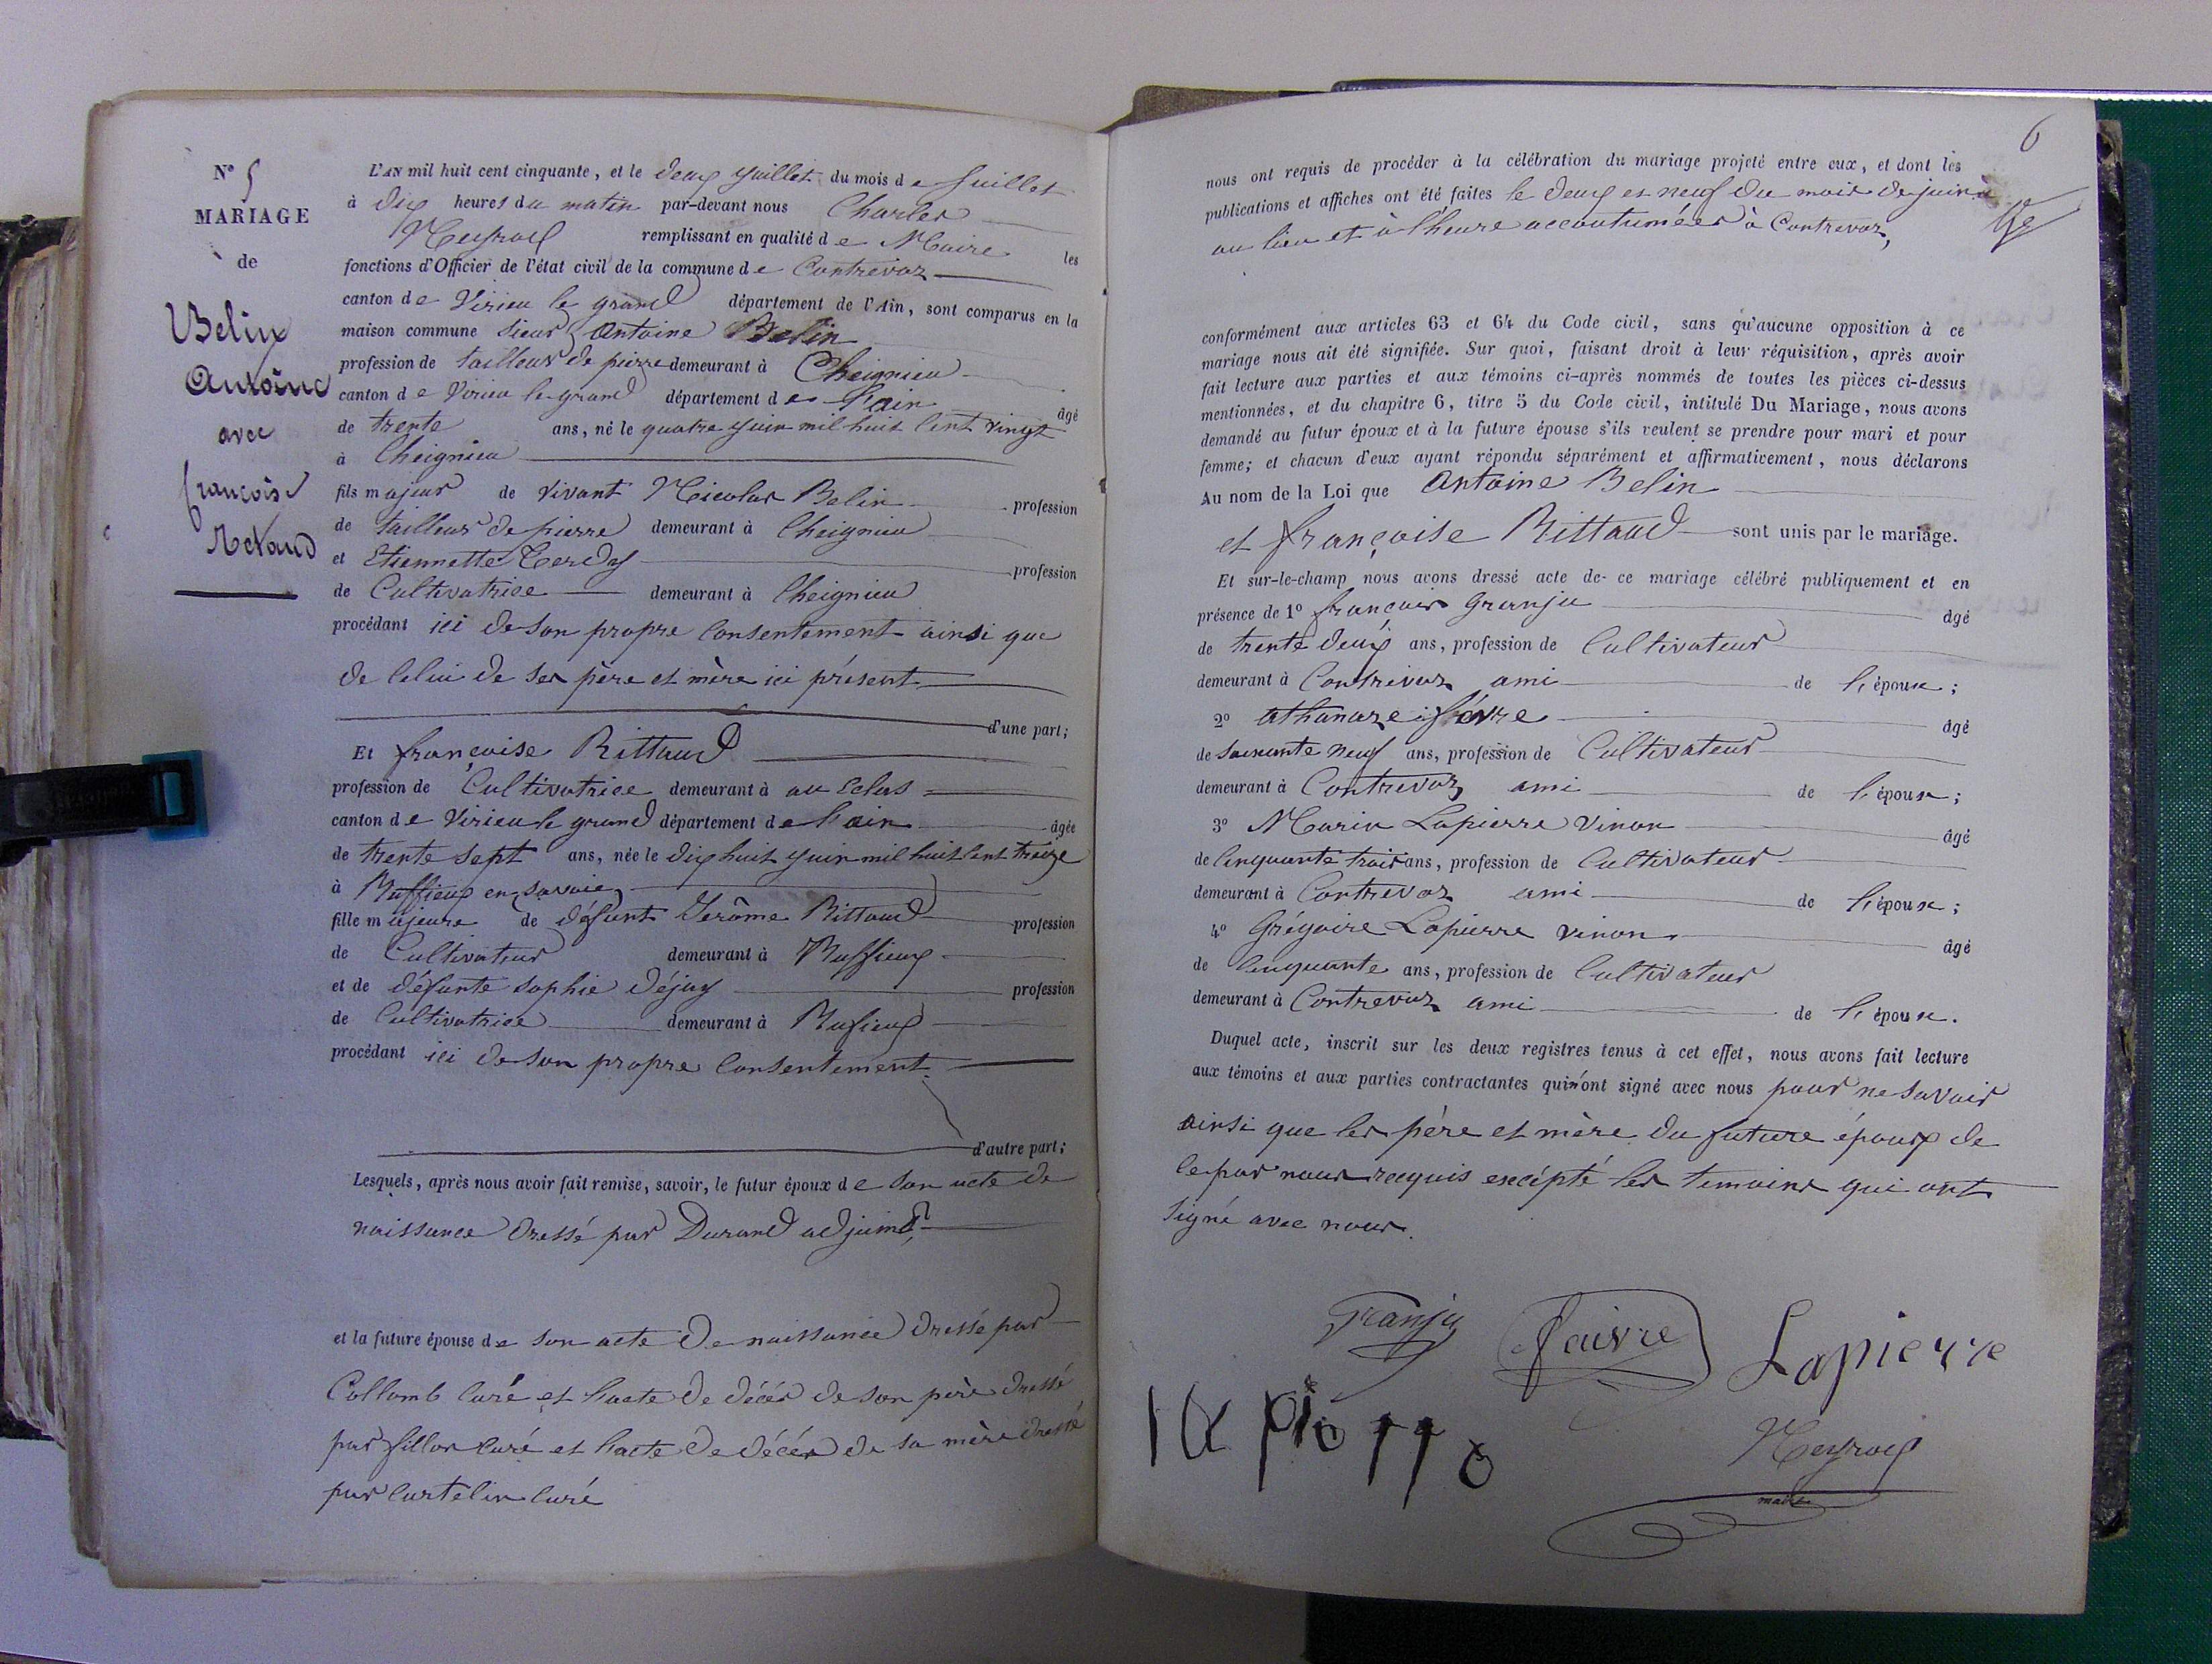 N° 5
MARIAGE
de
Belin
Antoine
avec
françoise
Retaud
L'AN mil huit cent cinquante, et le deux juillet du mois de Juillet
à dix heures du matin par-devant nous Charles
Meyroux remplissant en qualité de Maire les
fonctions d'Officier de l'état civil de la commune de Contrevoz
canton de Virieu le grand département de l'Ain, sont comparus en la
maison commune Sieur Antoine Belin
profession de tailleur de pierre demeurant à Cheignieu
canton de Virieu le grand département de l'ain âgé
de trente ans, né le quatre juin mil huit cent vingt
à Cheignieu
fils majeur de vivant Nicolas Belin profession
de tailleur de pierre demeurant à Cheignieu
et Etiennette profession
de Cultivatrice demeurant à Cheignieu
procédant ici de son propre consentement ainsi que
de celui de ses père et mère ici présent
d'une part;
Et françoise Rittaud
profession de Cultivatrice demeurant à au
canton de Virieu le grand département de l'ain âgée
de trente sept ans, née le dix huit juin mil huit cent treize
à Ruffieux en Savoie
fille majeure de défunt Jerôme Rittaud profession
de Cultivateur demeurant à Ruffieux
et de défunte Sophie Déjay profession
de Cultivatrice demeurant à Rufieux
procédant ici de son propre consentement
d'autre part;
Lesquels, après nous avoir fait remise, savoir, le futur époux de son acte de
naissance dressé par Durand adjoint,
et la future épouse de son acte de naissance dressé par
Collomb curé et l'acte de décès de son père dressé
par fillion curé et l'acte de décès de sa mère dressé
par curtelin curé
6
nous ont requis de procéder à la célébration du mariage projeté entre eux, et dont les
publications et affiches ont été faites le deux et neuf du mois de juin
au lieu et à l'heure accoutumées à Contrevoz,
conformément aux articles 63 et 64 du Code civil, sans qu'aucune opposition à ce
mariage nous ait été signifiée. Sur quoi, faisant droit à leur réquisition, après avoir
fait lecture aux parties et aux témoins ci-après nommés de toutes les pièces ci-dessus
mentionnées, et du chapitre 6, titre 5 du Code civil, intitulé Du Mariage, nous avons
demandé au futur époux et à la future épouse s'ils veulent se prendre pour mari et pour
femme; et chacun d'eux ayant répondu séparément et affirmativement, nous déclarons
Au nom de la Loi que Antoine Belin
et françoise Rittaud sont unis par le mariage.
Et sur-le-champ nous avons dressé acte de ce mariage célébré publiquement et en
présence de 1° françois Granju âgé
de trente deux ans, profession de Cultivateur
demeurant à Contrevoz ami de l'épouse;
2° athanaze fèvre âgé
de soixante neuf ans, profession de Cultivateur
demeurant à Contrevoz ami de l'épouse;
3° Marin Lapierre Vinon âgé
de Cinquante trois ans, profession de Cultivateur
demeurant à Contrevoz ami de l'épouse;
4° Grégoire Lapierre Vinon âgé
de Cinquante ans, profession de Cultivateur
demeurant à Contrevoz ami de l'épouse.
Duquel acte, inscrit sur les deux registres tenus à cet effet, nous avons fait lecture
aux témoins et aux parties contractantes qui n'ont signé avec nous pour ne savoir
ainsi que les père et mère du future époux de
ce par nous recquis excépté les temoins qui ont
signé avec nous.
Granju
faivre
Lapierre
la pierre
Meyroux
maire